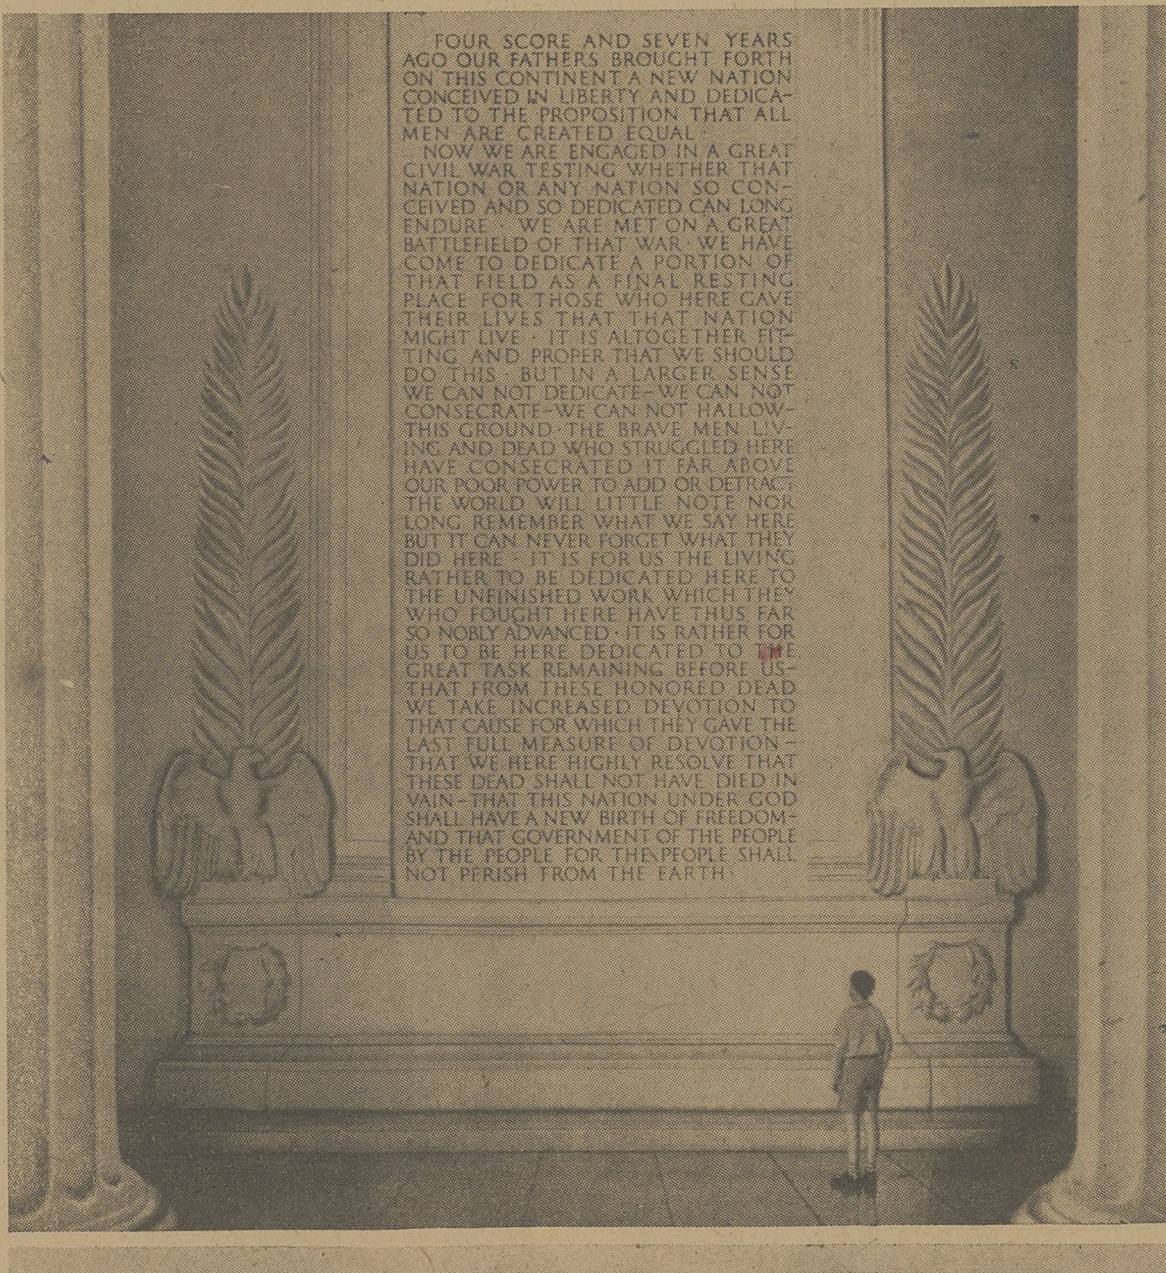 FOUR SCORE AND SEVEN YEARS
AGO OUR FATHERS BROUGHT FORTH
ON THIS CONTINENT A NEW NATION
CONCEIVED IN LIBERTY AND DEDICA-
TED TO THE PROPOSITION THAT ALL
MEN ARE CREATED EQUAL ·
NOW WE ARE ENGAGED IN A GREAT
CIVIL WAR TESTING WHETHER THAT
NATION OR ANY NATION SO CON-
CEIVED AND SO DEDICATED CAN LONG
ENDURE · WE ARE MET ON A GREAT
BATTLEFIELD OF THAT WAR · WE HAVE
COME TO DEDICATE A PORTION OF
THAT FIELD AS A FINAL RESTING
PLACE FOR THOSE WHO HERE GAVE
THEIR LIVES THAT THAT NATION
MIGHT LIVE · IT IS ALTOGETHER FIT-
TING AND PROPER THAT WE SHOULD
DO THIS · BUT IN A LARGER SENSE
WE CAN NOT DEDICATE–WE CAN NOT
CONSECRATE–WE CAN NOT HALLOW–
THIS GROUND · THE BRAVE MEN LIV-
ING AND DEAD WHO STRUGGLED HERE
HAVE CONSECRATED IT FAR ABOVE
OUR POOR POWER TO ADD OR DETRACT·
THE WORLD WILL LITTLE NOTE NOR
LONG REMEMBER WHAT WE SAY HERE
BUT IT CAN NEVER FORGET WHAT THEY
DID HERE · IT IS FOR US THE LIVING
RATHER TO BE DEDICATED HERE TO
THE UNFINISHED WORK WHICH THEY
WHO FOUGHT HERE HAVE THUS FAR
SO NOBLY ADVANCED · IT IS RATHER FOR
US TO BE HERE DEDICATED TO THE
GREAT TASK REMAINING BEFORE US–
THAT FROM THESE HONORED DEAD
WE TAKE INCREASED DEVOTION TO
THAT CAUSE FOR WHICH THEY GAVE THE
LAST FULL MEASURE OF DEVOTION –
THAT WE HERE HIGHLY RESOLVE THAT
THESE DEAD SHALL NOT HAVE DIED IN
VAIN–THAT THIS NATION UNDER GOD
SHALL HAVE A NEW BIRTH OF FREEDOM–
AND THAT GOVERNMENT OF THE PEOPLE
BY THE PEOPLE FOR THE PEOPLE SHALL
NOT PERISH FROM THE EARTH ·